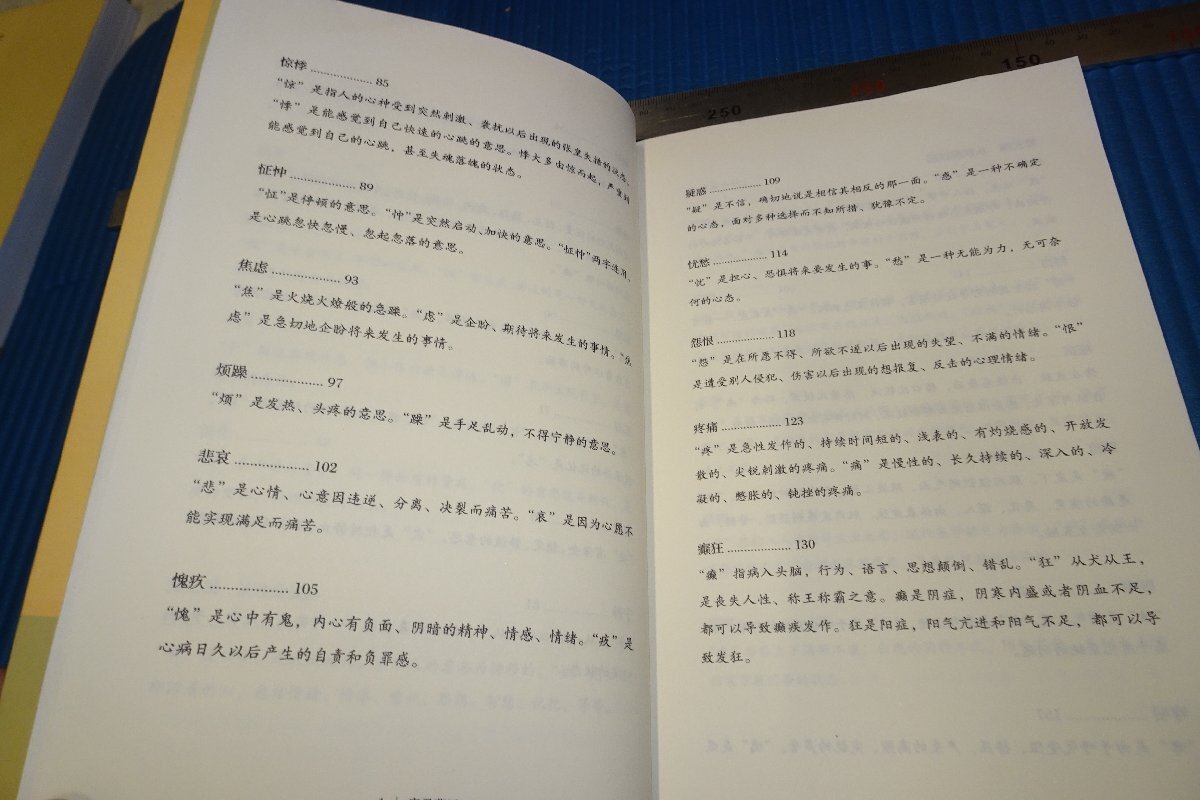 惊悸 .................. 85
“惊”是指人的心神受到突然刺激、袭扰以后出现的张皇失措的状态。
“悸”是能感觉到自己快速的心跳的意思。悸大多由惊而起，严重到
能感觉到自己的心跳，甚至失魂落魄的状态。
怔忡 .................. 89
“怔”是停顿的意思。“忡”是突然启动、加快的意思。“怔忡”两字连用，
是心跳忽快忽慢、忽起忽落的意思。
焦虑 .................. 93
“焦”是火烧火燎般的急躁。“虑”是企盼、期待将来发生的事情。“焦
虑”是急切地企盼将来发生的事情。
烦躁 .................. 97
“烦”是发热、头疼的意思。“躁”是手足乱动，不得宁静的意思。
悲哀 .................. 102
“悲”是心情、心意因违逆、分离、决裂而痛苦。“哀”是因为心愿不
能实现满足而痛苦。
愧疚 .................. 105
“愧”是心中有鬼，内心有负面、阴暗的精神、情感、情绪。“疚”是
心病日久以后产生的自责和负罪感。
疑惑 .................. 109
“疑”是不信，确切地说是相信其相反的那一面。“惑”是一种不确定
的心态，面对多种选择而不知所措、犹豫不定。
忧愁 .................. 114
“忧”是担心、恐惧将来要发生的事。“愁”是一种无能为力，无可奈
何的心态。
怨恨 .................. 118
“怨”是在所愿不得、所欲不遂以后出现的失望、不满的情绪。“恨”
是遭受别人侵犯、伤害以后出现的想报复、反击的心理情绪。
疼痛 .................. 123
“疼”是急性发作的、持续时间短的、浅表的、有灼烧感的、开放发
散的、尖锐刺激的疼痛。“痛”是慢性的、长久持续的、深入的、冷
凝的、憋胀的、钝挫的疼痛。
癫狂 .................. 130
“癫”指病入头脑，行为、语言、思想颠倒、错乱。“狂”从犬从王，
是丧失人性、称王称霸之意。癫是阴症，阴寒内盛或者阴血不足，
都可以导致癫疾发作。狂是阳症，阳气亢进和阳气不足，都可以导
致发狂。
250
150